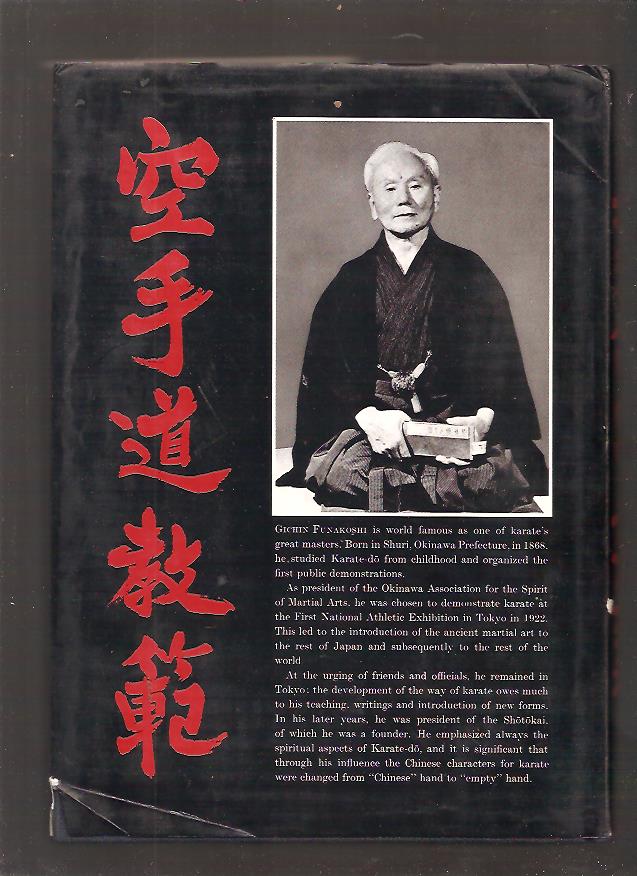 空手道教範
GICHIN FUNAKOSHI is world famous as one of karate's
great masters. Born in Shuri, Okinawa Prefecture, in 1868,
he studied Karate-dō from childhood and organized the
first public demonstrations.
As president of the Okinawa Association for the Spirit
of Martial Arts, he was chosen to demonstrate karate at
the First National Athletic Exhibition in Tokyo in 1922.
This led to the introduction of the ancient martial art to
the rest of Japan and subsequently to the rest of the
world
At the urging of friends and officials, he remained in
Tokyo; the development of the way of karate owes much
to his teaching, writings and introduction of new forms.
In his later years, he was president of the Shōtōkai,
of which he was a founder. He emphasized always the
spiritual aspects of Karate-dō, and it is significant that
through his influence the Chinese characters for karate
were changed from “Chinese” hand to “empty” hand.